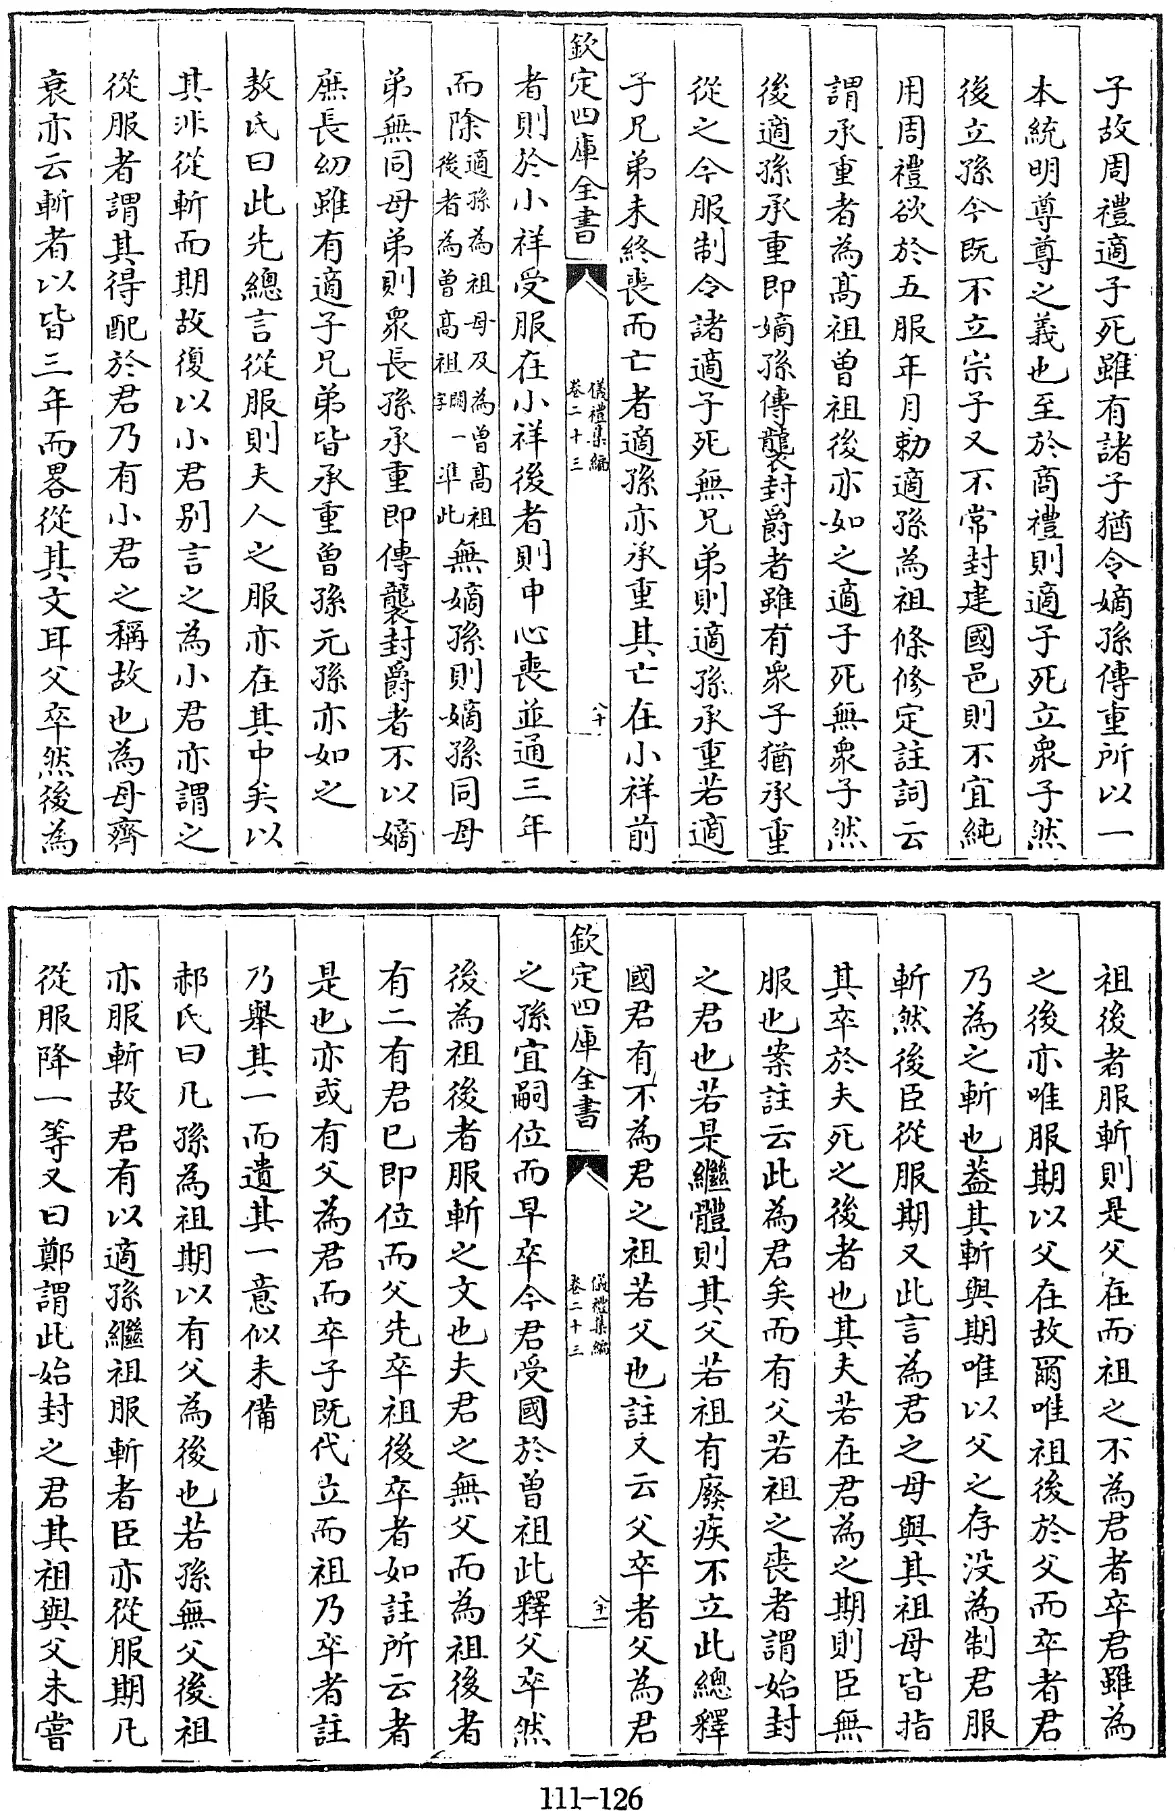 子故周禮適子死雖有諸子猶令嫡孫傳重所以一
本統明尊尊之義也至於商禮則適子死立衆子然
後立孫今既不立宗子又不常封建國邑則不宜純
用周禮欲於五服年月勅適孫為祖條修定註詞云
謂承重者為髙祖曽祖後亦如之適子死無衆子然
後適孫承重即嫡孫傳襲封爵者雖有衆子猶承重
從之今服制令諸適子死無兄弟則適孫承重若適
子兄弟未終喪而亡者適孫亦承重其亡在小祥前
欽定四庫全書
儀禮集編
卷二十三
八十
者則於小祥受服在小祥後者則申心喪並通三年
而除適孫為祖母及為曽髙祖後者為曽髙祖字闕一準此無嫡孫則嫡孫同母
弟無同母弟則衆長孫承重即傳襲封爵者不以嫡
庶長幼雖有適子兄弟皆承重曽孫元孫亦如之
敖氏曰此先總言從服則夫人之服亦在其中矣以
其非從斬而期故復以小君别言之為小君亦謂之
從服者謂其得配於君乃有小君之稱故也為母齊
衰亦云斬者以皆三年而畧從其文耳父卒然後為
祖後者服斬則是父在而祖之不為君者卒君雖為
之後亦唯服期以父在故爾唯祖後於父而卒者君
乃為之斬也葢其斬與期唯以父之存没為制君服
斬然後臣從服期又此言為君之母與其祖母皆指
其卒於夫死之後者也其夫若在君為之期則臣無
服也案註云此為君矣而有父若祖之喪者謂始封
之君也若是繼體則其父若祖有廢疾不立此總釋
國君有不為君之祖若父也註又云父卒者父為君
欽定四庫全書
儀禮集編
卷二十三
八十一
之孫宜嗣位而早卒今君受國於曽祖此釋父卒然
後為祖後者服斬之文也夫君之無父而為祖後者
有二有君已即位而父先卒祖後卒者如註所云者
是也亦或有父為君而卒子既代立而祖乃卒者註
乃舉其一而遺其一意似未備
郝氏曰凡孫為祖期以有父為後也若孫無父後祖
亦服斬故君有以適孫繼祖服斬者臣亦從服期凡
從服降一等又曰鄭謂此始封之君其祖與父未嘗
111-126